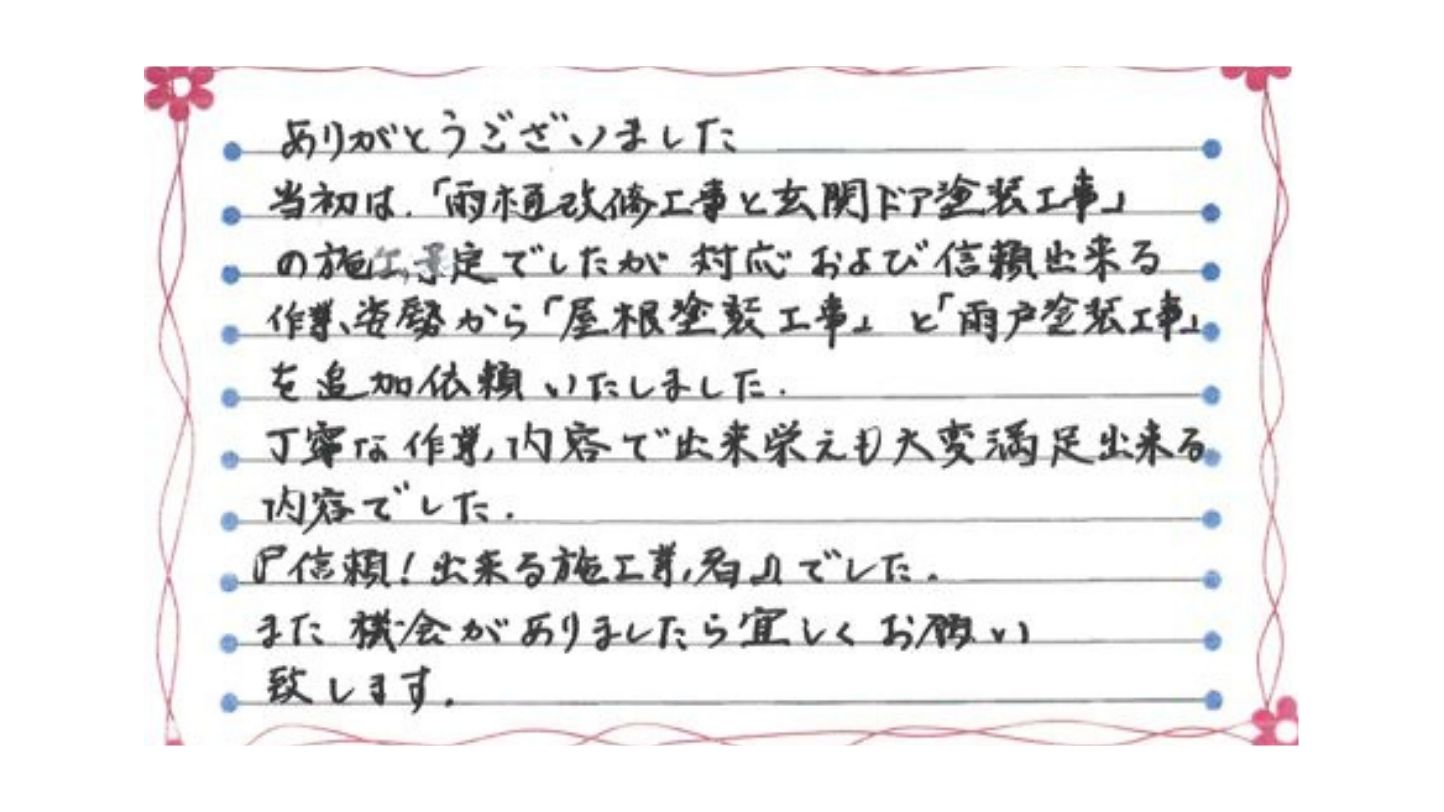 ありがとうございました
当初は.「雨樋改修工事と玄関ドア塗装工事」
の施工予定でしたが 対応 および信頼出来る
作業姿勢から「屋根塗装工事」と「雨戸塗装工事」
を追加依頼いたしました.
丁寧な作業,内容で出来栄えも大変満足出来る
内容でした.
『信頼!出来る施工業者』でした.
また機会がありましたら宜しくお願い
致します.